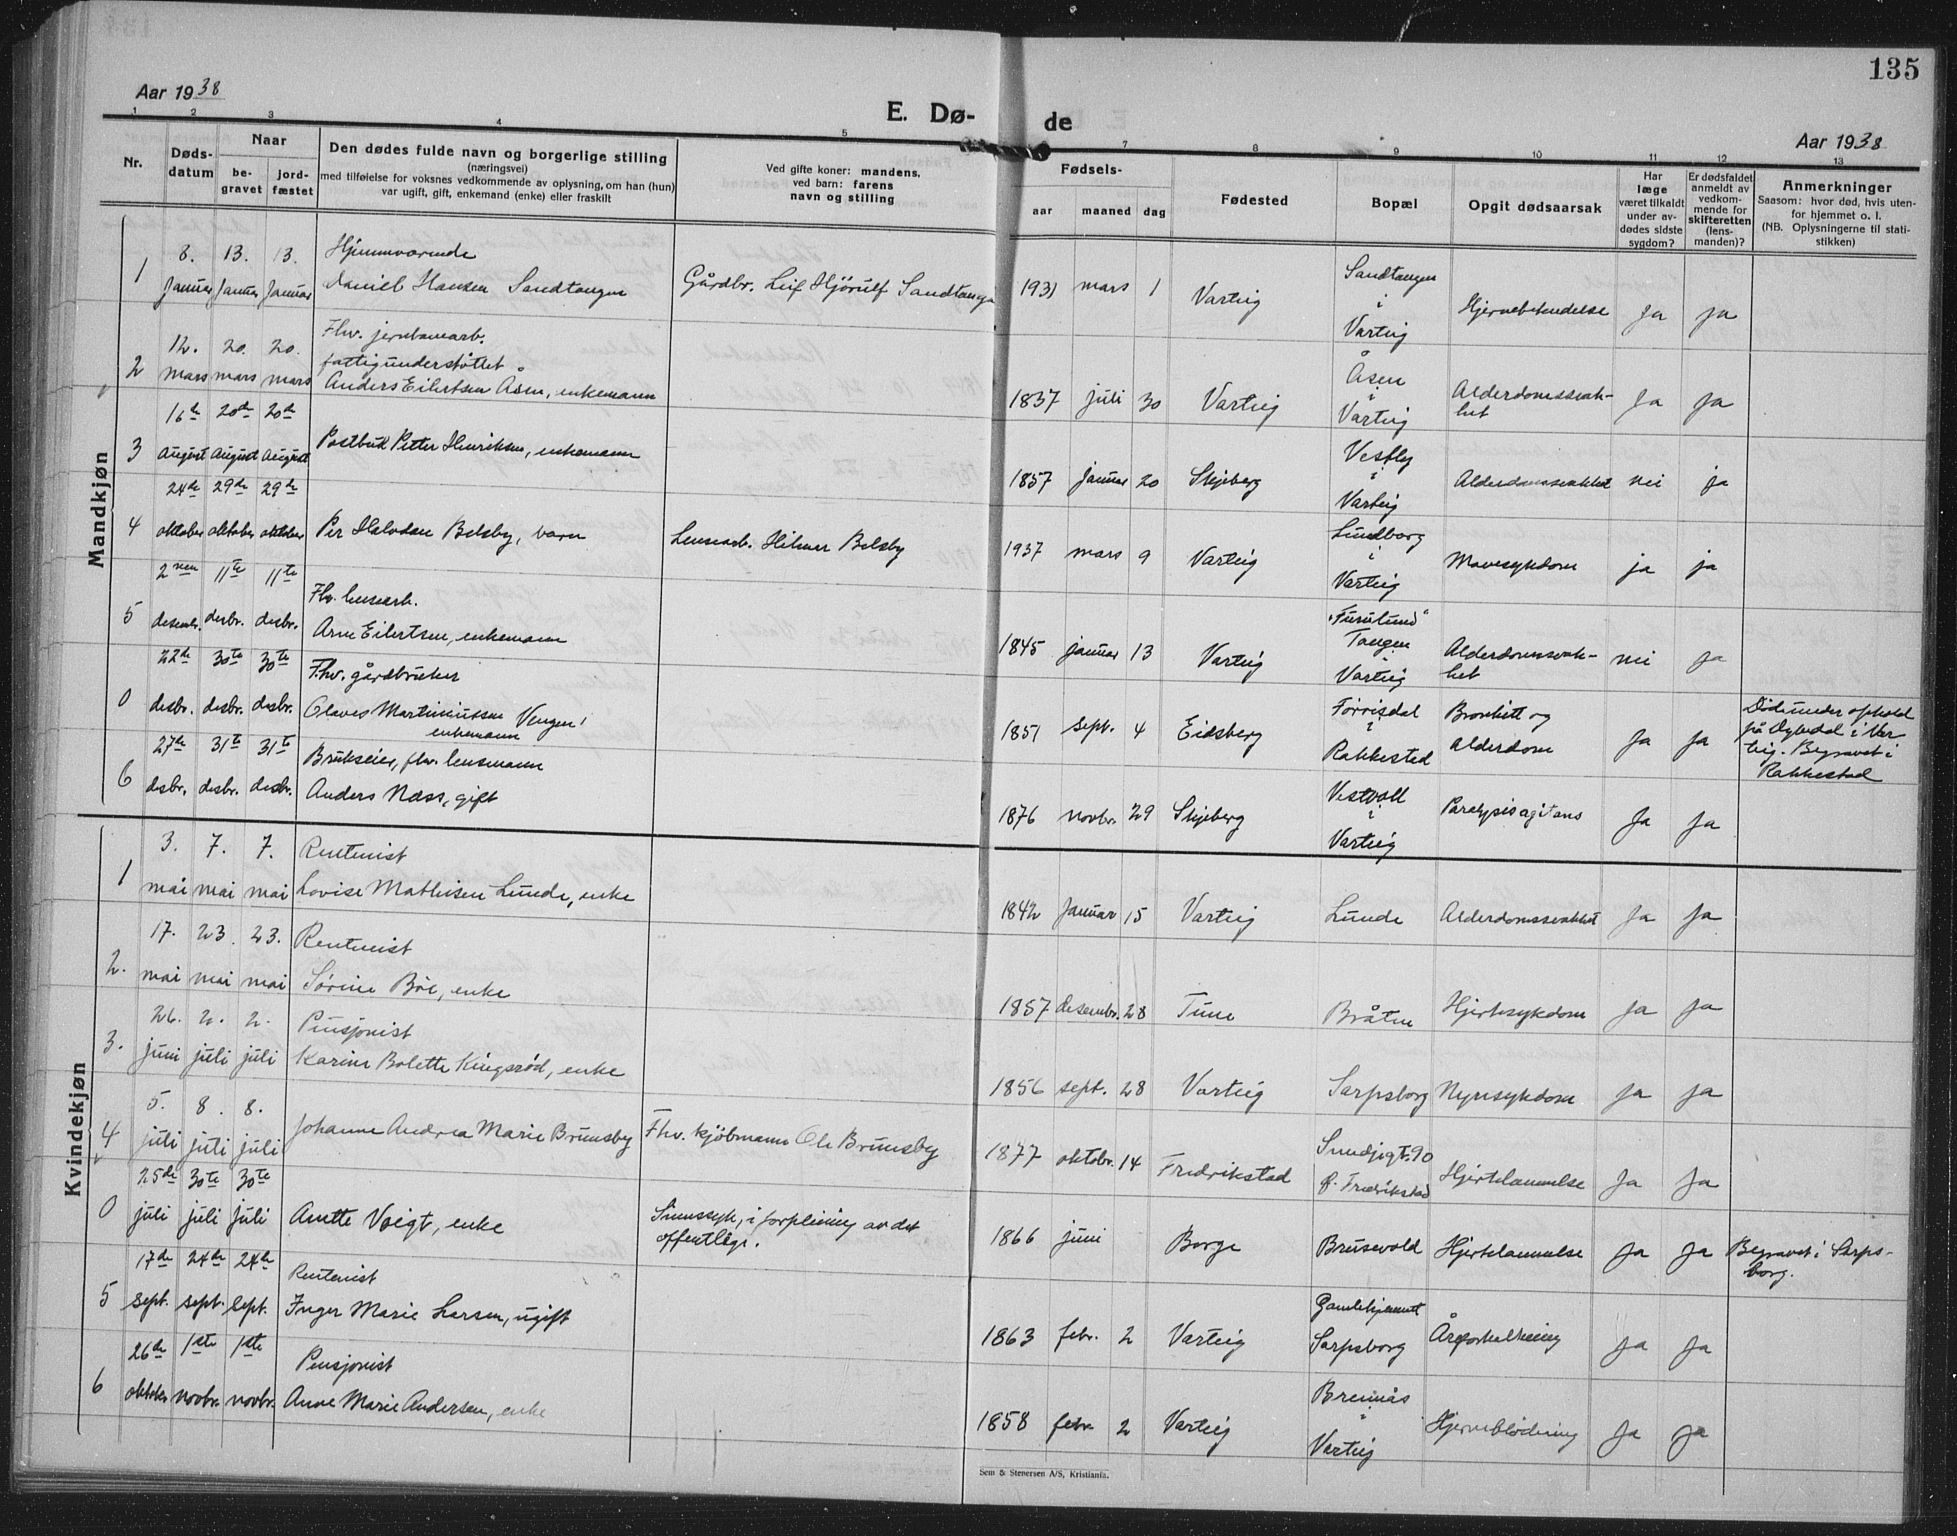 135
Aar 1938
E. Dø-
de
Aar 1938
1 2 3 4 5 7 8 9 10 11 12 13
Nr.
Døds-
datum
Naar
be-
gravet
jord-
fæstet
Den dødes fulde navn og borgerlige stilling
(næringsvei)
med tilføielse for voksnes vedkommende av oplysning, om han (hun)
var ugift, gift, enkemand (enke) eller fraskilt
Ved gifte koner: mandens,
ved barn: farens
navn og stilling
Fødsels-
aar maaned dag
Fødested
Bopæl
Opgit dødsaarsak
Har
læge
været tilkaldt
under av-
dødes sidste
sygdom?
Er dødsfaldet
anmeldt av
vedkom-
mende for
skifteretten
(lens-
manden)?
Anmerkninger
Saasom: hvor død, hvis uten-
for hjemmet o. l.
(NB. Oplysningerne til stati-
stikken)
Mandkjøn
8. 13. 13. Hjemmeværende
1 Januar Januar Januar Daniel Hansen Sandtangen Gårdbr. Leif Hjörulf Sandtangen 1931 mars 1 Varteig Sandtangen i Varteig Hjernebetendelse Ja Ja
12. 20. 20. Fhv. jernbanearb.
fattigunderstøttet
2 mars mars mars Anders Eilertsen Åsen, enkemann 1837 juli 30 Varteig Åsen i Varteig Alderdomssvak-
het Ja Ja
16de 20de 20de
3 August August August Postbud Petter Henriksen, enkemann 1857 Januar 20 Skjeberg Vestby i Varteig Alderdomssvakhet nei ja
24de 29de 29de
4 oktober oktober oktober Per Halvdan Belsby, barn Lensearb. Hilmar Belsby 1937 mars 9 Varteig Lundborg i Varteig Mavesykdom ja ja
2nen 11te 11te Fhv. lensearb.
5 desembr. desbr. desbr. Arne Eilertsen, enkemann 1845 januar 13 Varteig "Furulund" Tangen i Varteig Alderdomssvak-
het nei ja
22de 30te 30te Fhv. gårdbruker
0 desbr. desbr. desbr. Olaves Martiniussen Vengen,
enkemann 1851 sept. 4 Eidsberg Førrisdal i Rakkestad Bronkitt og
alderdom Ja Ja Död under ophold
på Dybedal i Var
teig. Begravet i
Rakkestad
27de 31te 31te Brukseier, fhv. lensmann
6 desbr. desbr. desbr. Anders Næss, gift 1876 novbr. 29 Skjeberg Vestvoll i Varteig Paralysis agitans Ja Ja
Kvindekjøn
3. 7. 7. Rentenist
1 mai mai mai Lovise Mathisen Lunde, enke 1842 Januar 15 Varteig Lunde Alderdomssvakhet Ja Ja
17. 23. 23. Rentenist
2. mai mai mai Sørine Böe, enke 1857 desembr. 28 Tune Bråten Hjertesykdom Ja Ja
26. 2. 2. Pensjonist
3. juni juli juli Karine Bolette Kingsrød, enke 1856 sept. 28 Varteig Sarpsborg Nyresykdom Ja Ja
5. 8. 8.
4 juli juli juli Johanne Andrea Marie Brunsby Fhv. kjöbmann Ole Brunsby 1877 oktobr. 14 Fredrikstad 90
p. Fredrikstad Hjertelammelse Ja Ja
25de 30te 30te
0 juli juli juli Anette Voigt, enke Sinnssyk, i forpleining av det
offentlige. 1866 juni Borge Brusevold Hjertelammelse Ja Ja Begravet i Sarps-
borg.
17de 24de 24de Rentenist
5 sept. sept. sept. Inger Marie Larsen, ugift 1863 febr. 2 Varteig Gamlehjemmet
Sarpsborg Åreforkalkning Ja Ja
26de 1ste 1ste Pensjonist
6 oktober novbr. novbr. Anne Marie Andersen, enke 1858 febr. 2 Varteig Brennås i Varteig Hjerneblödning Ja Ja
Sem & Stenersen A/S, Kristiania.